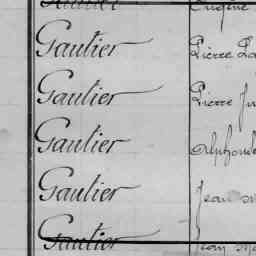 Eugène
Gautier Pierre
Gautier Pierre
Gautier Alphonse
Gautier Jean
Gautier Jean